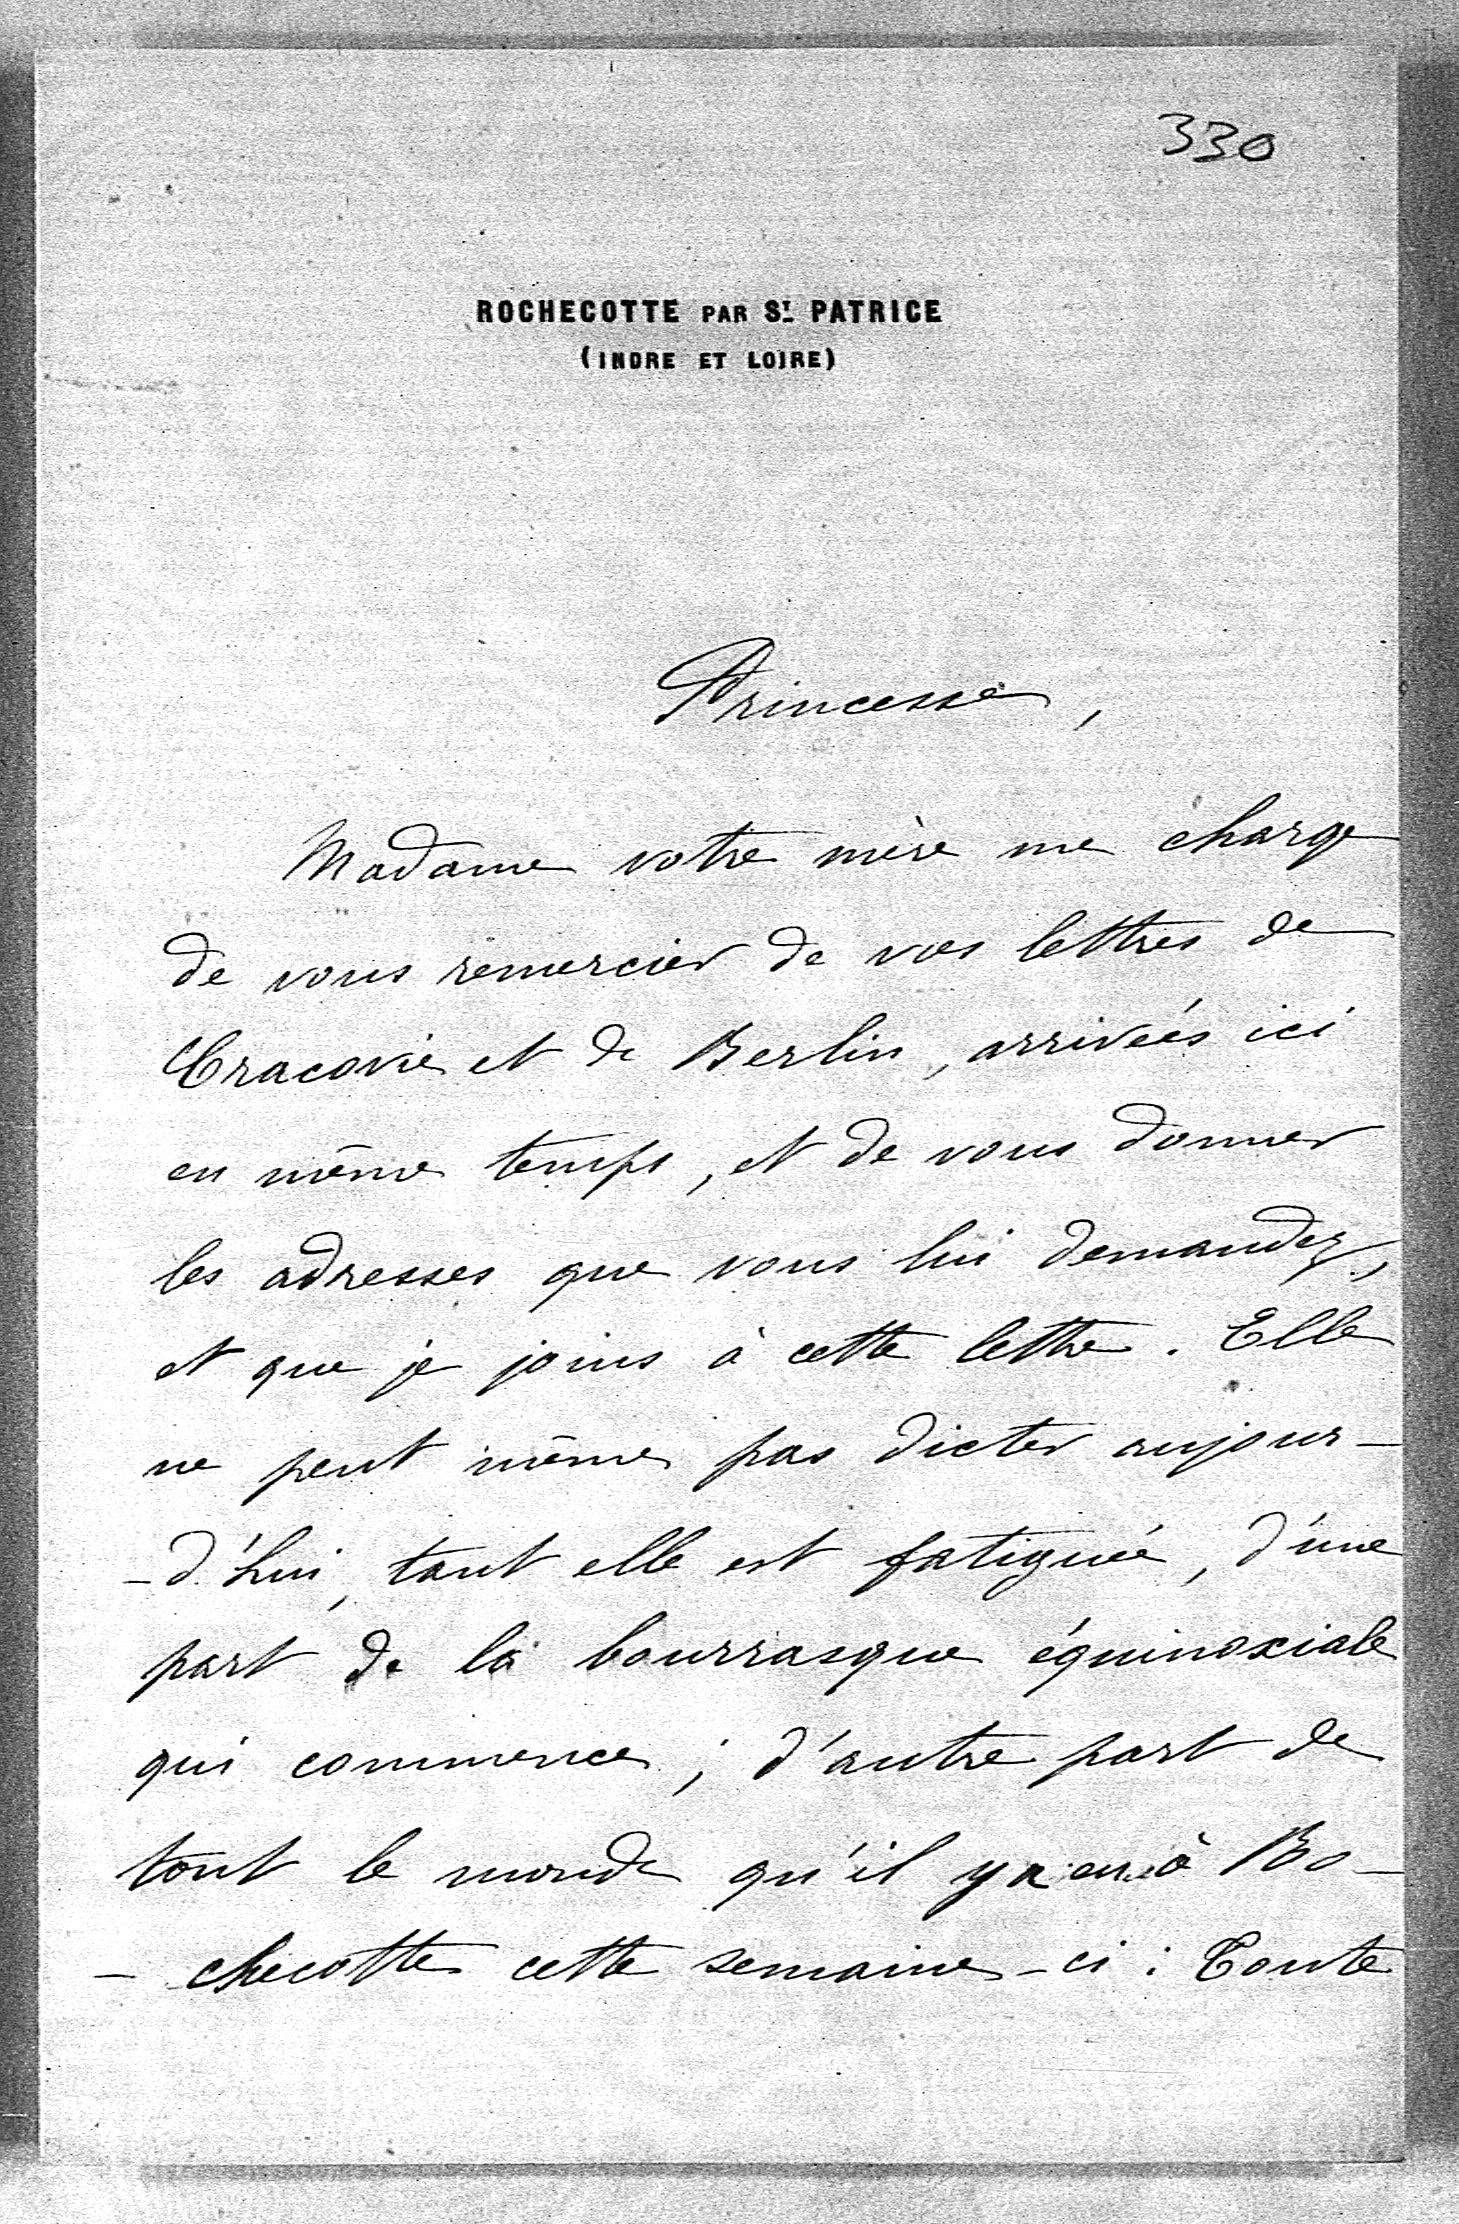 330
ROCHECOTTE PAR St PATRICE
(INDRE ET LOIRE)
Princesse,
Madame votre mère me charge
de vous remercier de vos lettres de
Cracovie et de Berlin, arrivées ici
en même temps, et de vous donner
les adresses que vous lui demandez,
et que je joins à cette lettre. Elle
ne peut même pas dicter aujour-
-d'hui, tant elle est fatiguée, d'une
part de la bourrasque équinoxiale
qui commence; d'autre part de
tout le monde qu'il y a eu à Ro-
-checotte cette semaine-ci: Toute